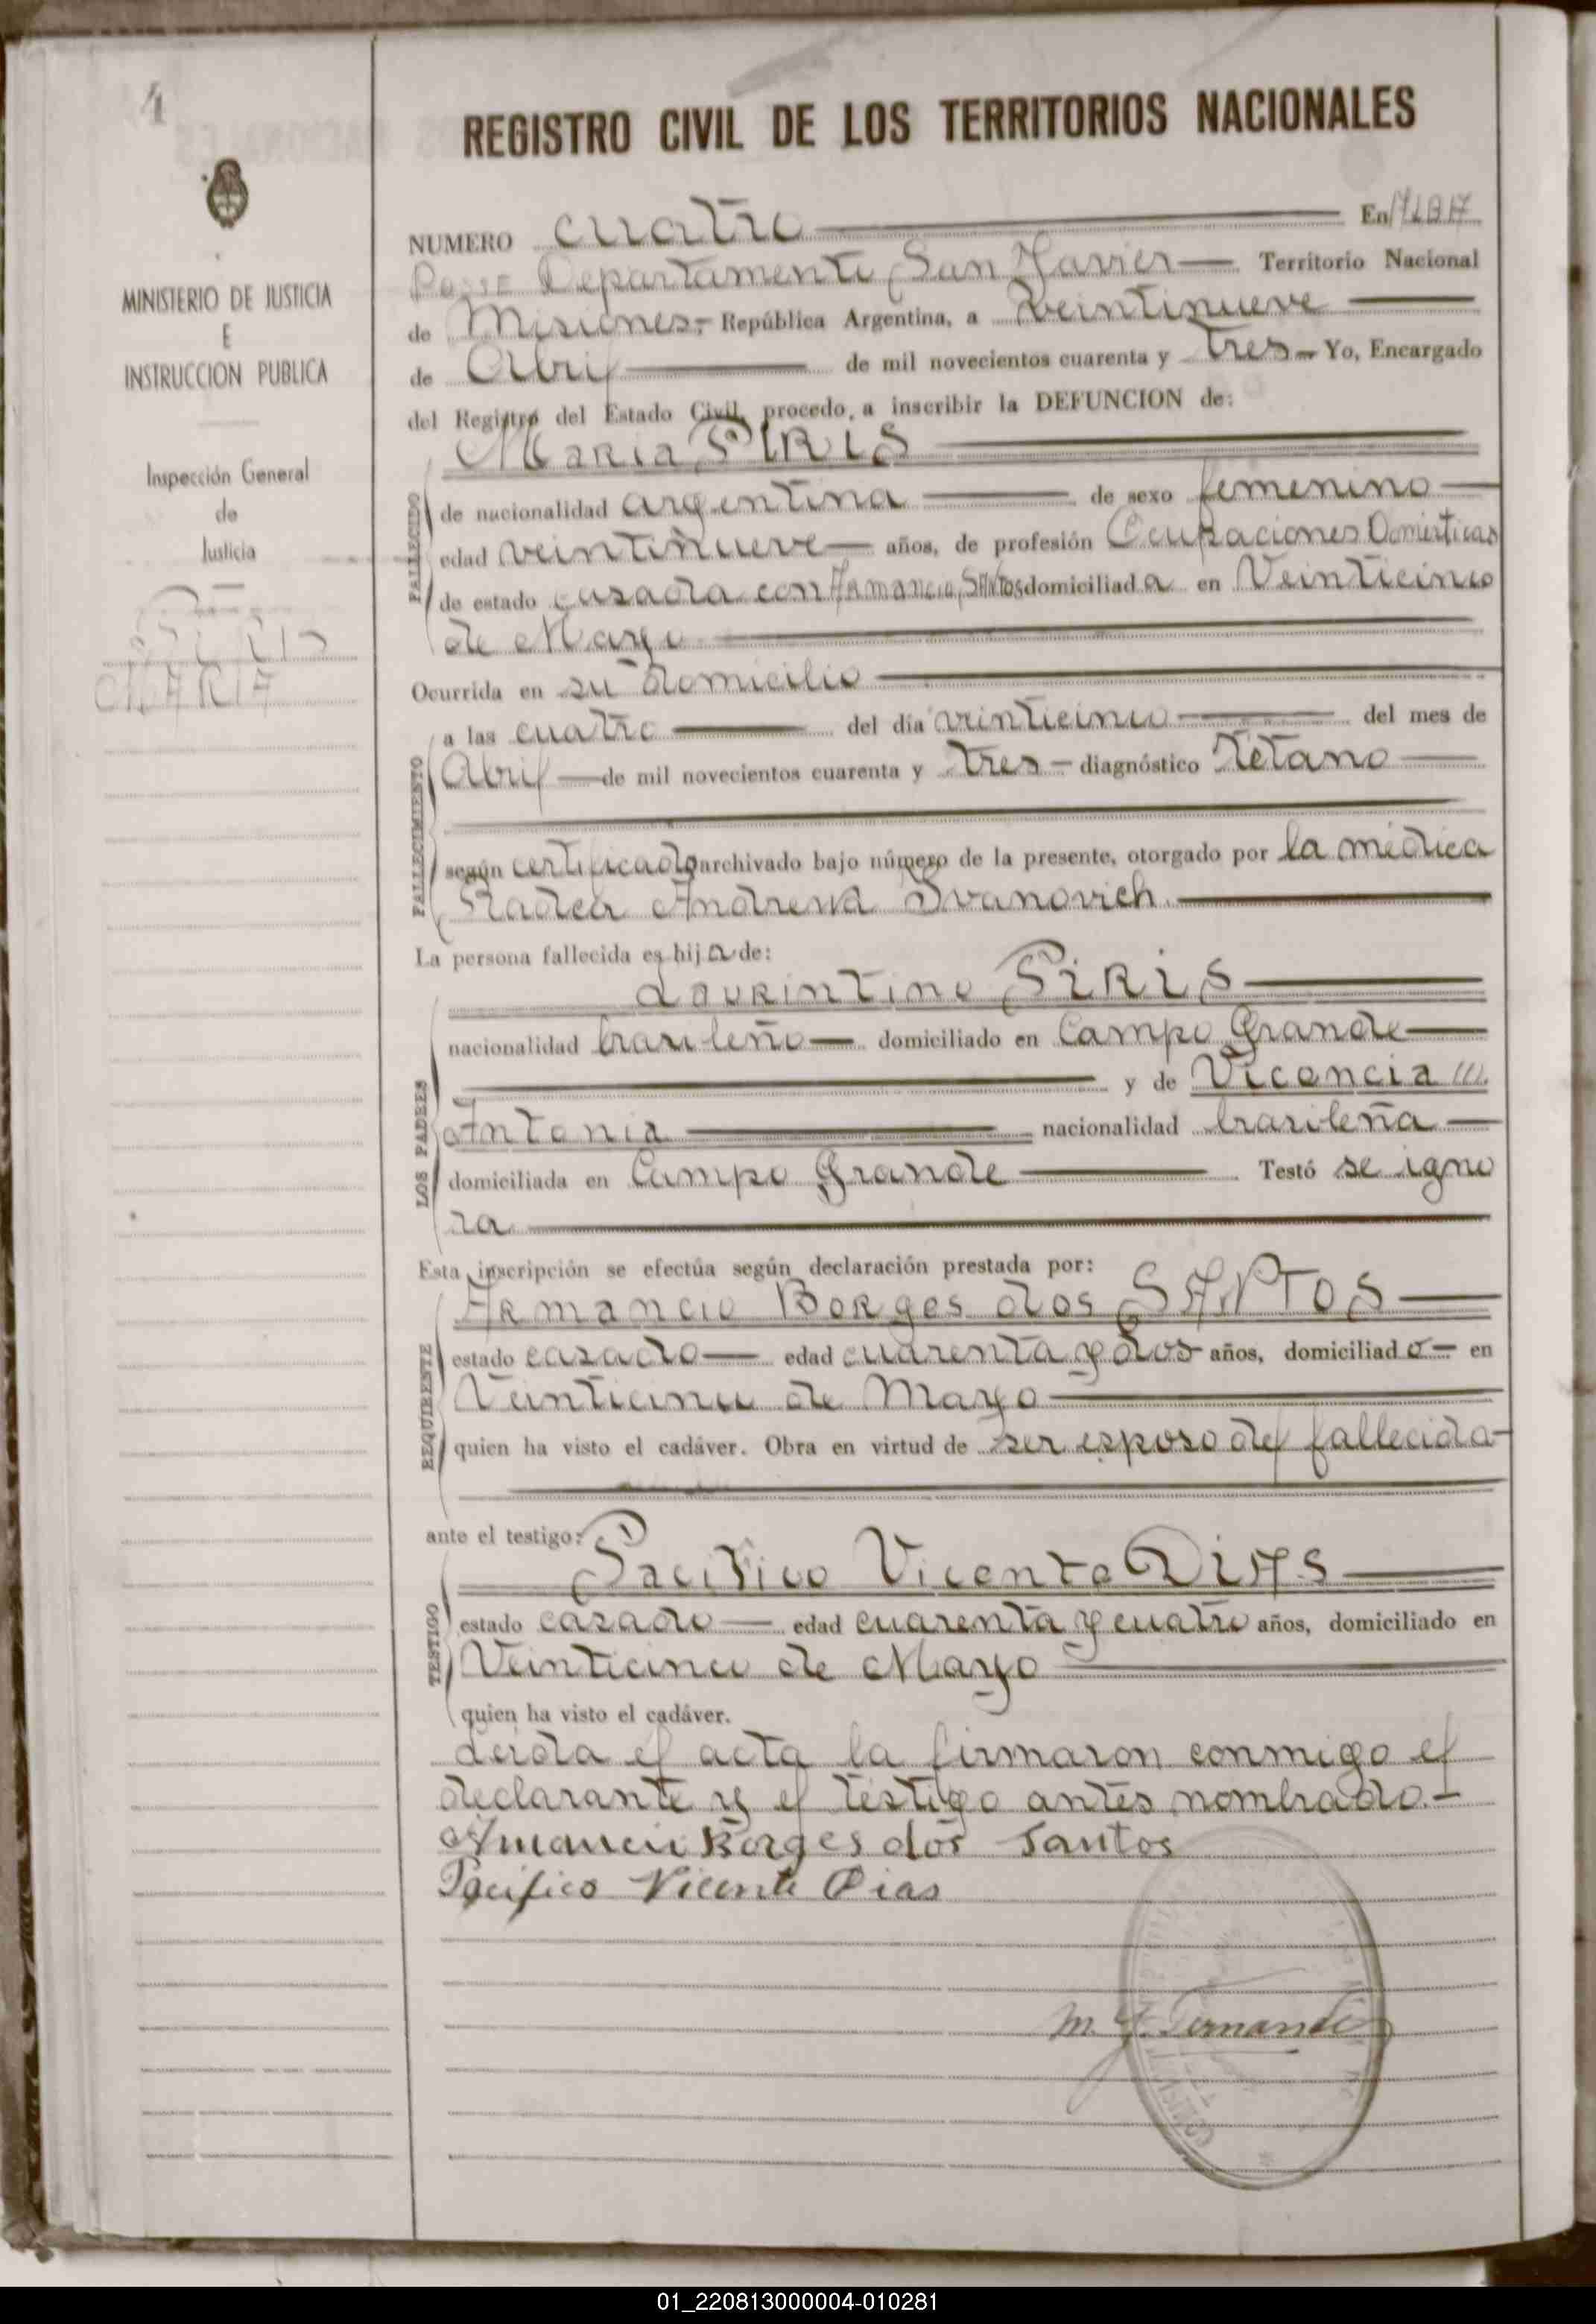 4
MINISTERIO DE JUSTICIA
E
INSTRUCCION PUBLICA
Inspección General
de
Justicia
PIRIS
MARIA
REGISTRO CIVIL DE LOS TERRITORIOS NACIONALES
NUMERO cuatro En
Departamento San Javier Territorio Nacional
de Misiones, República Argentina, a veintinueve
de Abril de mil novecientos cuarenta y tres Yo, Encargado
del Registro del Estado Civil, procedo, a inscribir la DEFUNCION de:
Maria PIRIS
FALLECIDO
de nacionalidad argentina de sexo femenino
edad veintinueve años, de profesión Ocupaciones Domésticas
de estado casada con Armancio SANTOS domiciliada en Veinticinco
de Mayo
Ocurrida en su domicilio
a las cuatro del día veinticinco del mes de
FALLECIMIENTO
Abril de mil novecientos cuarenta y tres diagnóstico Tétano
según certificado archivado bajo número de la presente, otorgado por la médica
Radea Andrewa Ivanovich
La persona fallecida es hija de:
Lourintino PIRIS
LOS PADRES
nacionalidad brasileño domiciliado en Campo Grande
y de Vicencia
Antonia nacionalidad brasileña
domiciliada en Campo Grande Testó se igno
ra
Esta inscripción se efectúa según declaración prestada por:
Armancio Borges dos SANTOS
REQUIRENTE
estado casado edad cuarenta y dos años, domiciliado en
Veinticinco de Mayo
quien ha visto el cadáver. Obra en virtud de ser esposo del fallecida
ante el testigo:
Pacifico Vicente DIAS
TESTIGO
estado casado edad cuarenta y cuatro años, domiciliado en
Veinticinco de Mayo
quien ha visto el cadáver.
Leída el acta la firmaron conmigo el
declarante y el testigo antes nombrado.-
Amancio Borges dos Santos
Pacifico Vicente Dias
M. J. Fernandez
01_220813000004-010281